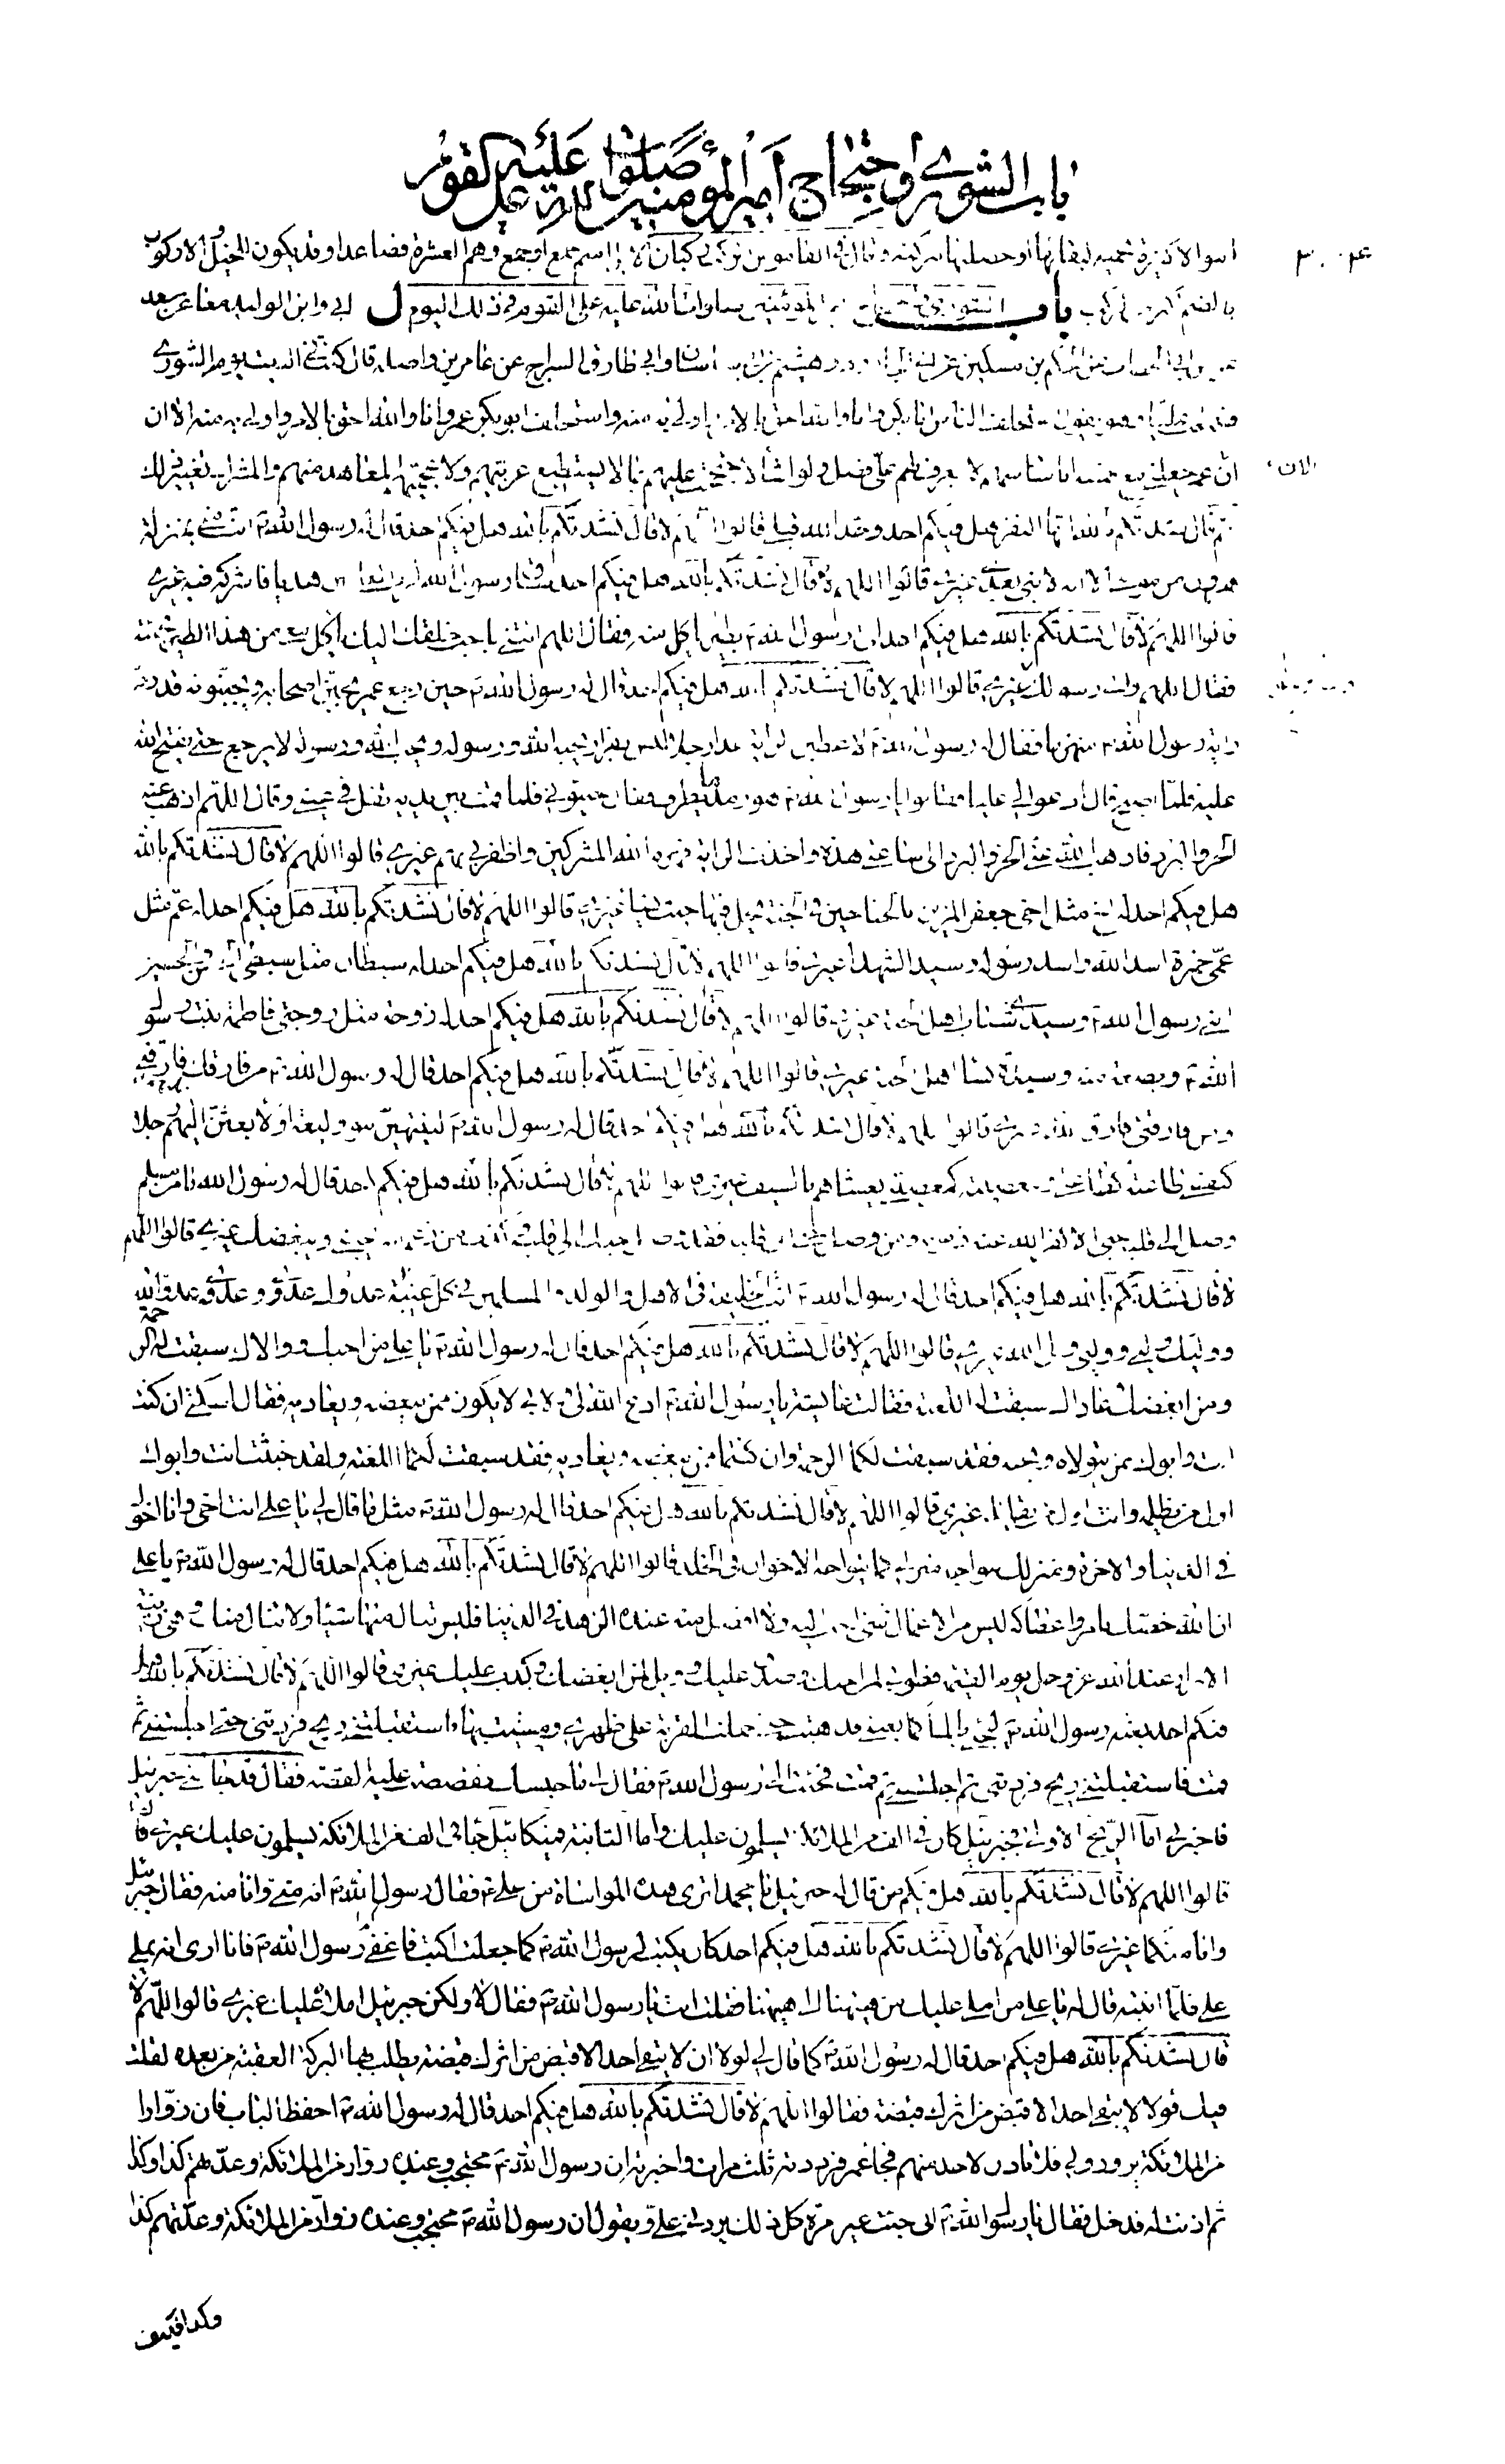 باب الشورى واحتجاج أمير المؤمنين صلوات الله عليه على القوم
بالضم باب الشورى المؤمنين صلوات الله عليه على القوم في ذلك اليوم ل ابي وابن الوليد معا عن سعد
عن ابن ابي الخطاب عن الحكم بن مسكين عن هيثم وابي طارق السراج عن عامر بن واصله قال كنت في البيت يوم الشورى
فسمعت عليا وهو يقول استخلف الناس ابا بكر وانا والله احق بالامر واولى به منه واستخلف ابو بكر عمر وانا والله احق بالامر واولى به منه الا ان
ان عمر جعلني مع خمسة انا سادسهم لا يعرف لهم علي فضل ولو اشاء لاحتججت عليهم بما لا يستطيع عربيهم ولا عجميهم المعاهد منهم والمشرك تغيير ذلك
ثم قال نشدتكم بالله ايها النفر هل فيكم احد وحد الله قبلي قالوا اللهم لا قال نشدتكم بالله هل فيكم احد قال له رسول الله ص انت مني بمنزلة
هرون من موسى الا انه لا نبي بعدي غيري قالوا اللهم لا قال نشدتكم بالله هل فيكم احد ساق رسول الله هديا فاشركه فيه غيري
قالوا اللهم لا قال نشدتكم بالله هل فيكم احد اتى رسول الله ص بطير ياكل منه فقال اللهم ائتني باحب خلقك اليك ياكل معي من هذا الطير فجئته
فقال اللهم والى رسولك غيري قالوا اللهم لا قال نشدتكم بالله هل فيكم احد قال له رسول الله ص حين رجع عمر يجبن اصحابه ويجبنونه قد رد
راية رسول الله ص منهزما فقال له رسول الله ص لاعطين الراية غدا رجلا ليس بفرار يحبه الله ورسوله ويحب الله ورسوله لا يرجع حتى يفتح الله
عليه فلما اصبح قال ادعوا لي عليا فقالوا يا رسول الله ص هو رمد ما يطرف فقال جيئوني فلما قمت بين يديه تفل في عيني وقال اللهم اذهب عنه
الحر والبرد فاذهب الله عني الحر والبرد الى ساعتي هذه واخذت الراية فهزم الله المشركين واظفرني بهم غيري قالوا اللهم لا قال نشدتكم بالله
هل فيكم احد له اخ مثل اخي جعفر المزين بالجناحين في الجنة يحل فيها حيث يشاء غيري قالوا اللهم لا قال نشدتكم بالله هل فيكم احد له عم مثل
عمي حمزة اسد الله واسد رسوله وسيد الشهداء غيري قالوا اللهم لا قال نشدتكم بالله هل فيكم احد له سبطان مثل سبطي الحسن والحسين
ابني رسول الله ص وسيدي شباب اهل الجنة غيري قالوا اللهم لا قال نشدتكم بالله هل فيكم احد له زوجة مثل زوجتي فاطمة بنت رسول
الله ص وبضعة منه وسيدة نساء اهل الجنة غيري قالوا اللهم لا قال نشدتكم بالله هل فيكم احد قال له رسول الله ص من فارقك فارقني
ومن فارقني فارق الله غيري قالوا اللهم لا قال نشدتكم بالله هل فيكم احد قال له رسول الله ص لينتهين بنو وليعة او لابعثن اليهم رجلا
كنفسي طاعته كطاعتي ومعصيته كمعصيتي يغشاهم بالسيف غيري قالوا اللهم لا قال نشدتكم بالله هل فيكم احد قال له رسول الله ما من مسلم
وصل الى قلبه حبي الا كفر الله عنه ذنوبه ومن وصل حبي الى قلبه فقد وصل حبك الى قلبه وكذب من زعم انه يحبني ويبغضك غيري قالوا اللهم
لا قال نشدتكم بالله هل فيكم احد قال له رسول الله ص انت الخليفة في الاهل والولد والمسلمين في كل غيبة عدوك عدوي وعدوي عدو الله
ووليك وليي ووليي ولي الله غيري قالوا اللهم لا قال نشدتكم بالله هل فيكم احد قال له رسول الله ص يا علي من احبك ووالاك سبقت له الرحمة
ومن ابغضك وعاداك سبقت له اللعنة فقالت عائشة يا رسول الله ص ادع الله لي ولابي لا يكون ممن يبغضه ويعاديه فقال اسكتي ان كنت
انت وابوك ممن يتولاه ويحبه فقد سبقت لكما الرحمة وان كنتما ممن يبغضه ويعاديه فقد سبقت لكما اللعنة ولقد خبثت انت وابوك
اول من يظلمه وانت اول من يقاتله غيري قالوا اللهم لا قال نشدتكم بالله هل فيكم احد قال له رسول الله ص مثل ما قال لي يا علي انت اخي وانا اخوك
في الدنيا والاخرة ومنزلك مواجه منزلي كما يتواجه الاخوان في الخلد قالوا اللهم لا قال نشدتكم بالله هل فيكم احد قال له رسول الله ص يا علي
ان الله خصك بامر واعطاكه ليس من الاعمال شيء احب اليه ولا افضل منه عنده الزهد في الدنيا فليس تنال منها شيئا ولا تنال منك وهي زينة
الابرار عند الله عز وجل يوم القيمة فطوبى لمن احبك وصدق عليك وويل لمن ابغضك وكذب عليك غيري قالوا اللهم لا قال نشدتكم بالله هل
فيكم احد بعثه رسول الله ص ليجيء بالماء كما بعثني فذهبت حتى حملت القربة على ظهري ومشيت بها فاستقبلتني ريح فردتني حتى اجلستني ثم
قمت فاستقبلتني ريح فردتني ثم اجلستني ثم قمت فجئت الى رسول الله ص فقال لي ما حبسك فقصصت عليه القصة فقال قد جاءني جبرئيل
فاخبرني اما الريح الاولى فجبرئيل كان في الف من الملائكة يسلمون عليك واما الثانية فميكائيل جاء في الف من الملائكة يسلمون عليك غيري
قالوا اللهم لا قال نشدتكم بالله هل فيكم من قال له جبرئيل يا محمد اترى هذه المواساة من علي ع فقال رسول الله ص انه مني وانا منه فقال جبرئيل
وانا منكما غيري قالوا اللهم لا قال نشدتكم بالله هل فيكم احد كان يكتب لرسول الله ص كما جعلت اكتب فاغفى رسول الله ص فانا ارى انه يملي
علي فلما انتبه قال له يا علي من املى عليك من هيهنا الى هيهنا فقلت انت يا رسول الله ص فقال لا ولكن جبرئيل املاه عليك غيري قالوا اللهم لا
قال نشدتكم بالله هل فيكم احد قال له رسول الله ص كما قال لي لولا ان لا يبقى احد الا قبض من اثرك قبضة يطلب بها البركة لعقبه من بعده لقلت
فيك قولا لا يبقى احد الا قبض من اثرك قبضة فقالوا اللهم لا قال نشدتكم بالله هل فيكم احد قال له رسول الله ص احفظ الباب فان زوارا
من الملائكة يزوروني فلا تاذن لاحد منهم فجاء عمر فرددته ثلث مرات واخبرته ان رسول الله ص محتجب وعنده زوار من الملائكة وعدتهم كذا وكذا
ثم اذنت له فدخل فقال يا رسول الله ص اني جئت غير مرة كل ذلك يردني علي ويقول ان رسول الله ص محتجب وعنده زوار من الملائكة وعدتهم كذا
وكذا فكيف